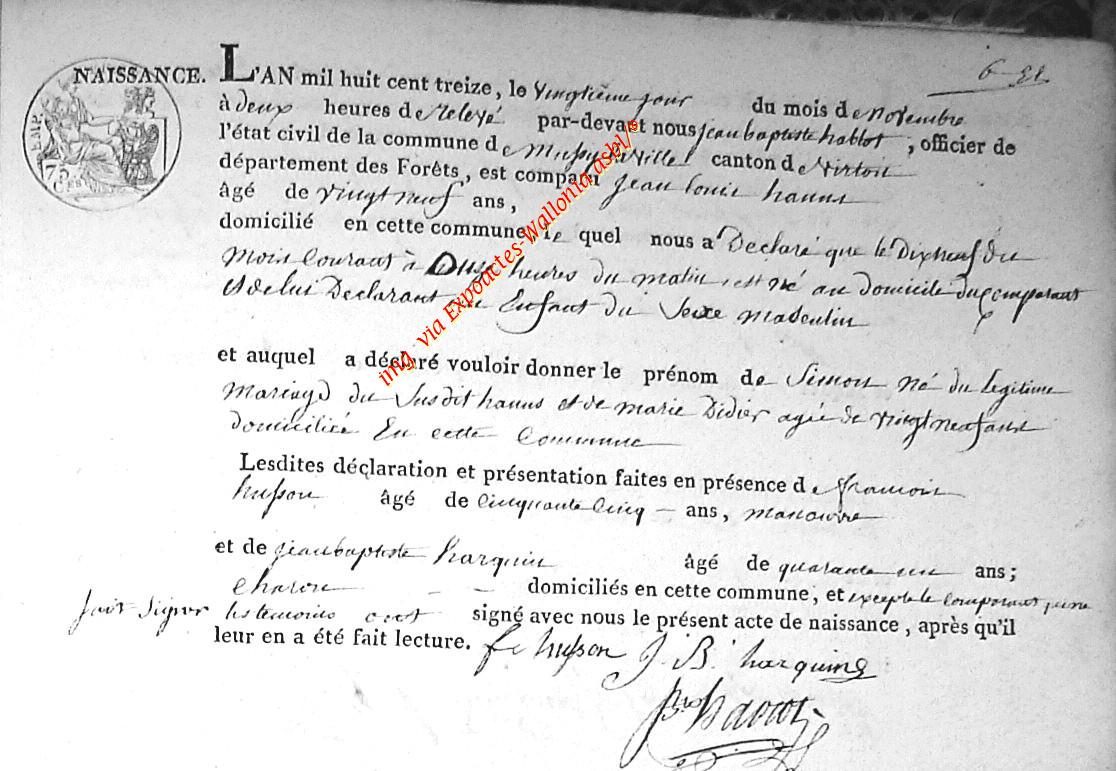 6 El.
NAISSANCE. L'AN mil huit cent treize, le vingtième jour du mois de novembre
à deux heures de Relevé par-devant nous jean baptiste hablot, officier de
l'état civil de la commune de Mussy la Ville canton de Virton
département des Forêts, est comparu Jean louis hanus
âgé de vingt neuf ans,
domicilié en cette commune, le quel nous a Declaré que le Dix neuf du
mois Courant à Onze heures du matin, est né au domicile du Comparant
et de lui Declarant un Enfant du Sexe masculin
et auquel a déclaré vouloir donner le prénom de Simon né du legitime
mariage du Susdit hanus et de marie Didier agée de vingt neuf ans
domiciliée En cette Commune
Lesdites déclaration et présentation faites en présence de francois
husson âgé de Cinquante Cinq — ans, manouvre
et de jean baptiste harquin âgé de quarante un ans;
Charon - - domiciliés en cette commune, et excepté le comparant qui ne
sait Signer les temoins ont signé avec nous le présent acte de naissance, après qu'il
leur en a été fait lecture. fc husson J. B. harquin
EMP.
75
CES
img. via Expoactes-Wallonia asbl/©